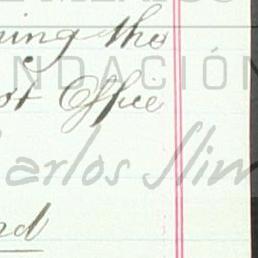 ning the
FUNDACIÓN
ot Office
Carlos Slim
nd